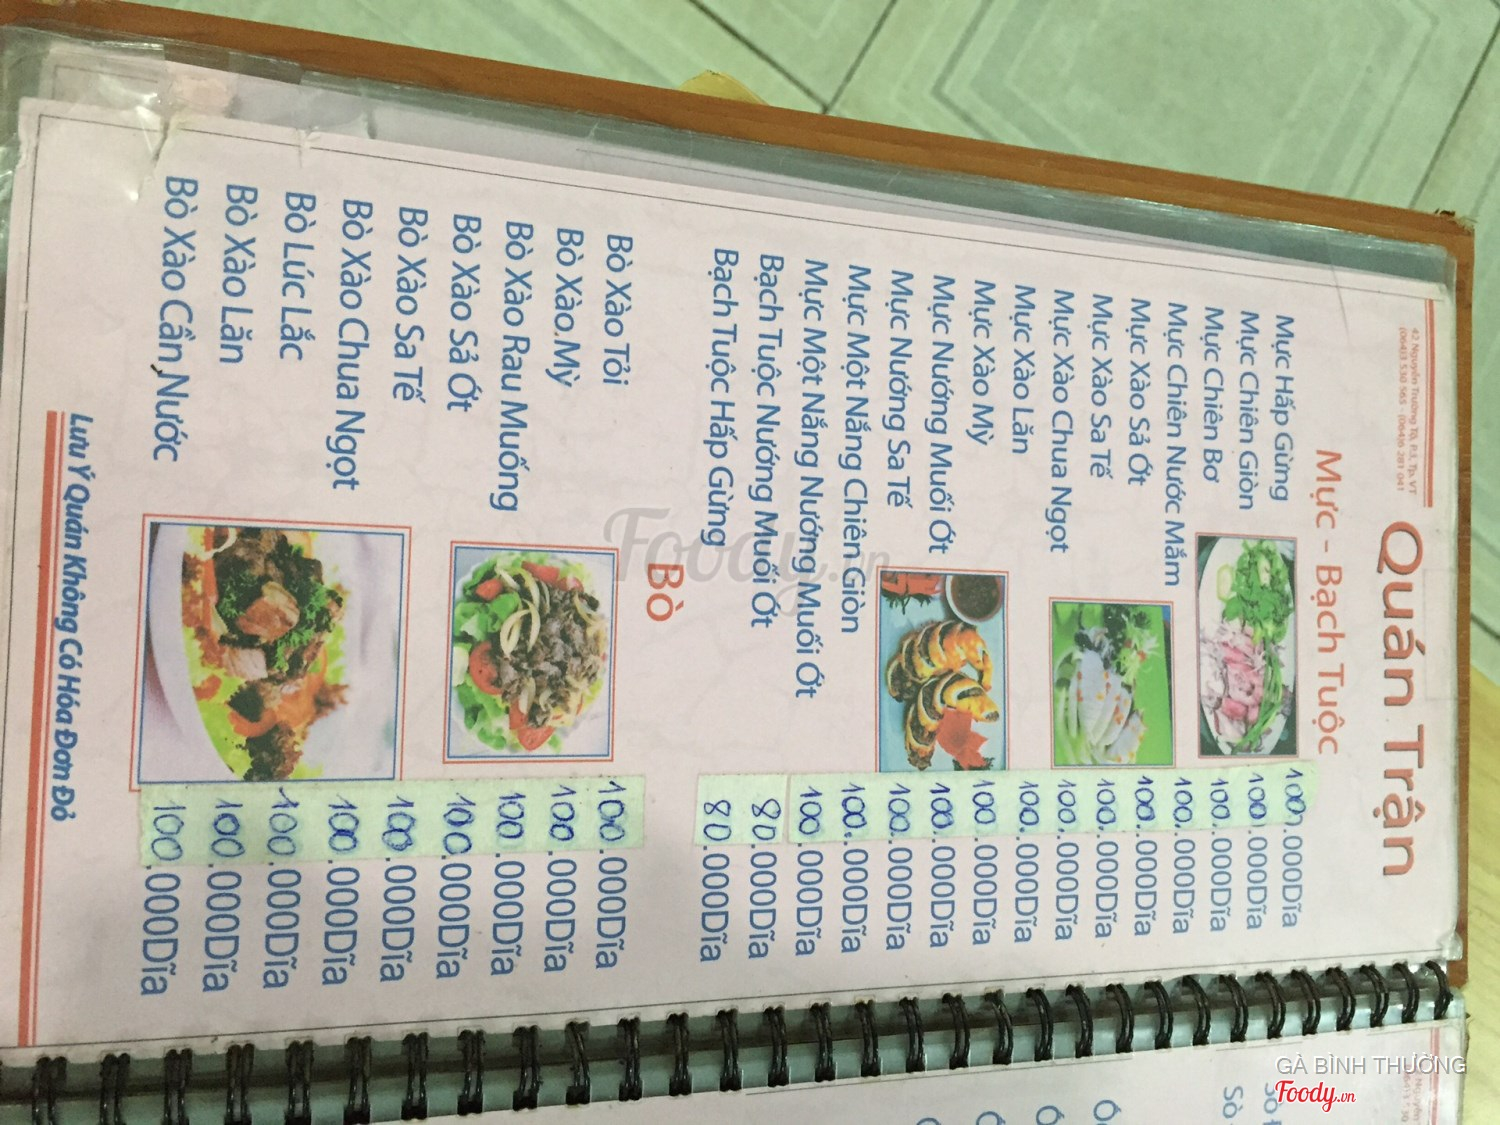 42 Nguyễn Trường Tộ, P.1, Tp. VT
(064)3 530 565 - (064)6 281 041
Quán Trận
Mực - Bạch Tuộc
Mực Hấp Gừng 100.000Dĩa
Mực Chiên Giòn 100.000Dĩa
Mực Chiên Bơ 100.000Dĩa
Mực Chiên Nước Mắm 100.000Dĩa
Mực Xào Sả Ớt 100.000Dĩa
Mực Xào Sa Tế 100.000Dĩa
Mực Xào Chua Ngọt 100.000Dĩa
Mực Xào Lăn 100.000Dĩa
Mực Xào Mỳ 100.000Dĩa
Mực Nướng Muối Ớt 100.000Dĩa
Mực Nướng Sa Tế 100.000Dĩa
Mực Một Nắng Chiên Giòn 100.000Dĩa
Mực Một Nắng Nướng Muối Ớt 100.000Dĩa
Bạch Tuộc Nướng Muối Ớt 80.000Dĩa
Bạch Tuộc Hấp Gừng 80.000Dĩa
Bò
Bò Xào Tỏi 100.000Dĩa
Bò Xào Mỳ 100.000Dĩa
Bò Xào Rau Muống 100.000Dĩa
Bò Xào Sả Ớt 100.000Dĩa
Bò Xào Sa Tế 100.000Dĩa
Bò Xào Chua Ngọt 100.000Dĩa
Bò Lúc Lắc 100.000Dĩa
Bò Xào Lăn 100.000Dĩa
Bò Xào Cần Nước 100.000Dĩa
Lưu Ý Quán Không Có Hóa Đơn Đỏ
Foody.vn
GÀ BÌNH THƯỜNG
Foody.vn